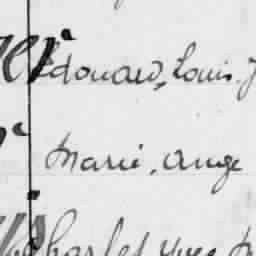 Edouard, Louis. J
Marie, Ange
Charles, Yves M